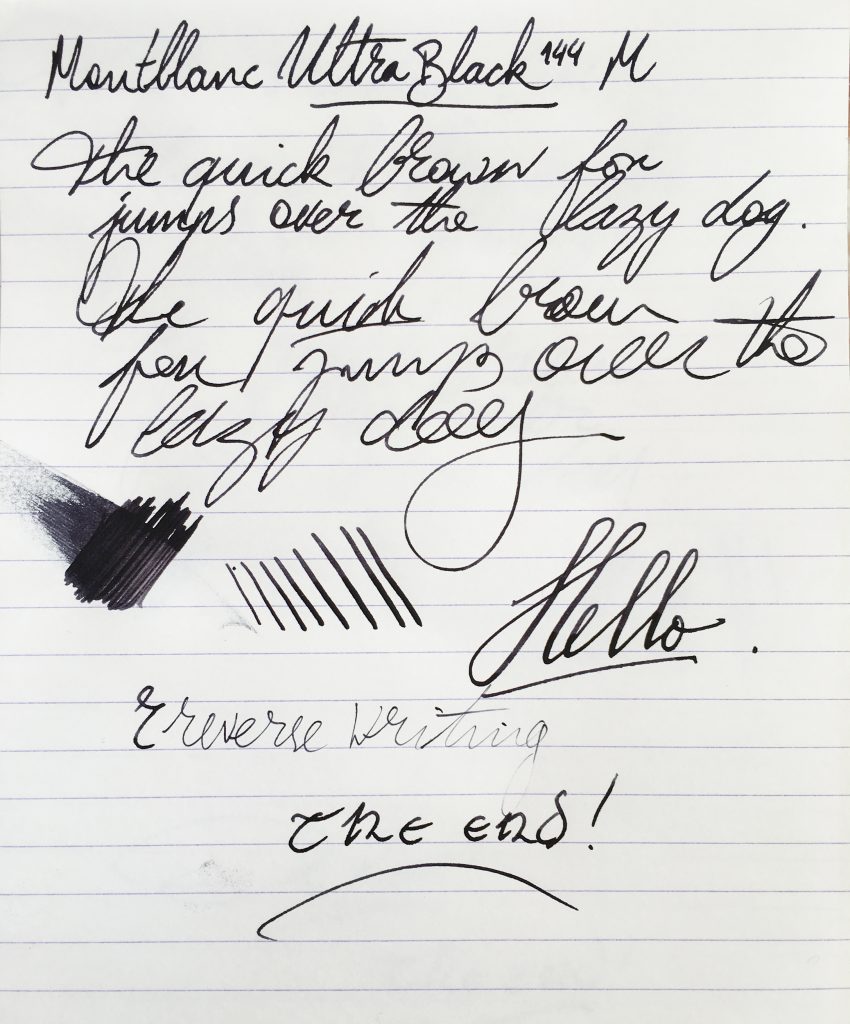 Montblanc Ultra Black 144 M
The quick brown fox
jumps over the lazy dog.
The quick brown
fox jumps over the
lazy dog
Hello.
reverse writing
The end!